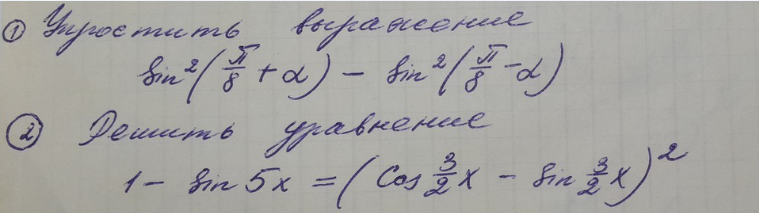 ① Упростить выражение
sin²(π/8 + α) − sin²(π/8 − α)
② Решить уравнение
1 − sin 5x = (cos 3/2 x − sin 3/2 x)²